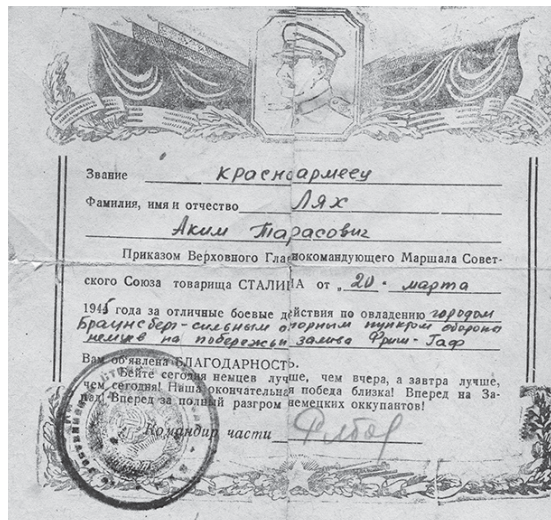 Звание красноармеец
Фамилия, имя и отчество Лях
Аким Тарасович
Приказом Верховного Главнокомандующего Маршала Совет-
ского Союза товарища СТАЛИНА от „20" марта
1945 года за отличные боевые действия по овладению городом
Браунсберг – сильным опорным пунктом обороны
немцев на побережьи залива Фриш-Гаф
Вам объявлена БЛАГОДАРНОСТЬ.
Бейте сегодня немцев лучше, чем вчера, а завтра лучше,
чем сегодня! Наша окончательная победа близка! Вперед на За-
пад! Вперед за полный разгром немецких оккупантов!
Командир части